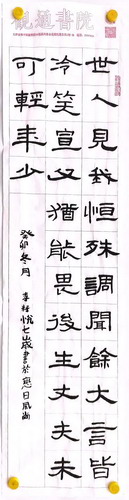 觀通書院
世人見我恒殊調聞餘大言皆
冷笑宣父猶能畏後生丈夫未
可輕年少
癸卯冬月
李梓悅七歲書於恩日風尚